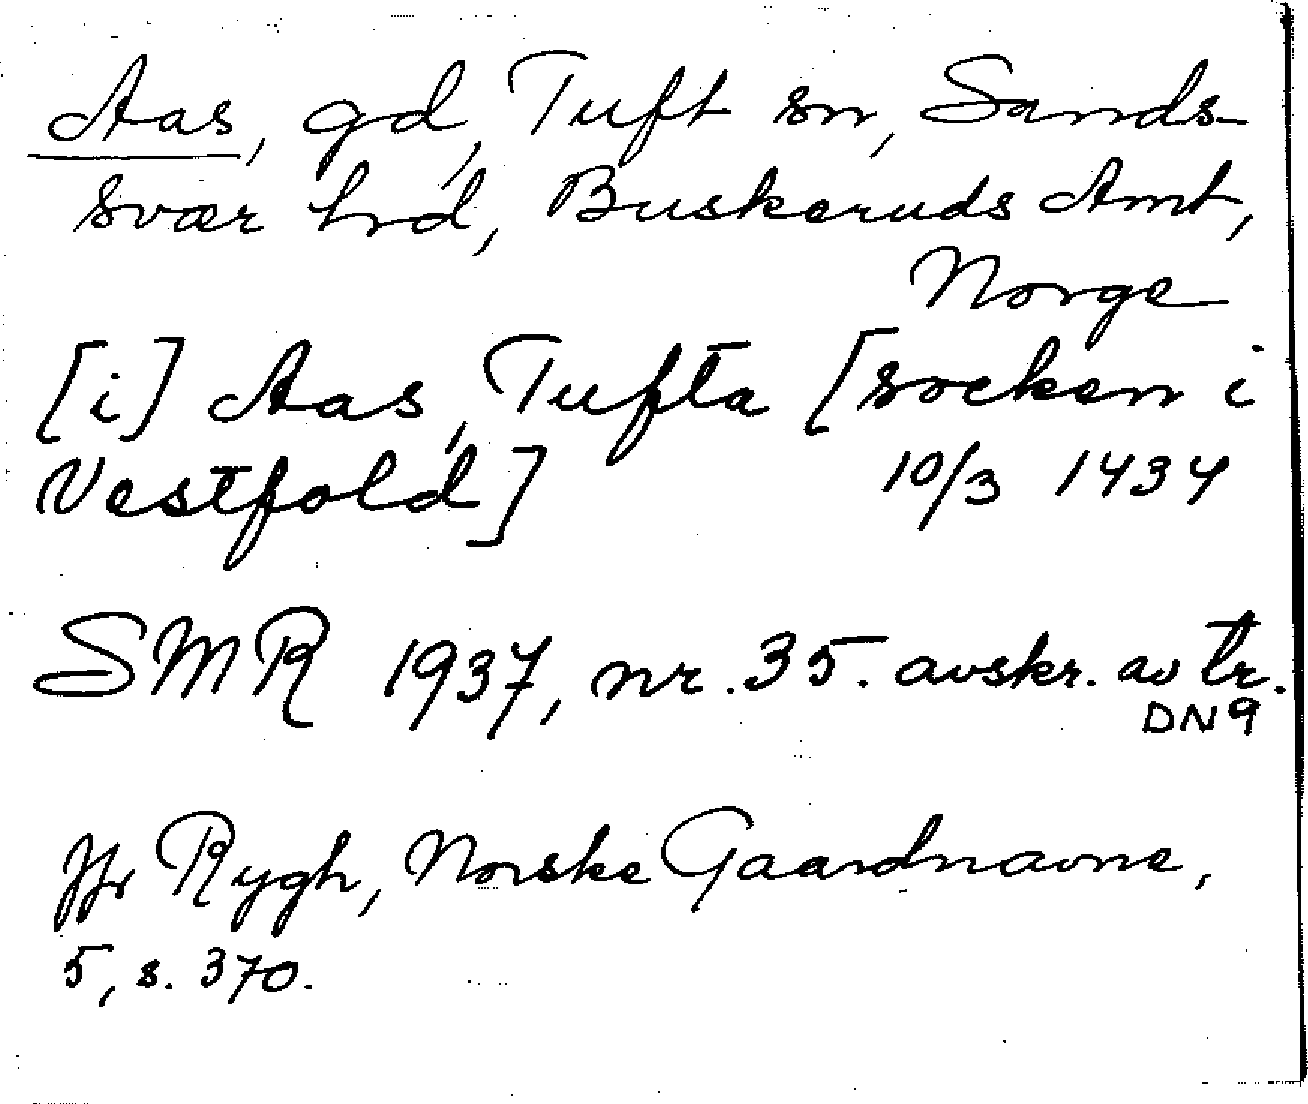 Aas, gd, Tuft sn, Sands-
svær hrd, Buskeruds Amt,
Norge
[i] Aas, Tufta [socken i
Vestfold] 10/3 1434
SMR 1937, nr. 35. avskr. av tr.
DN9
Jfr Rygh, Norske Gaardnavne,
5, s. 370.